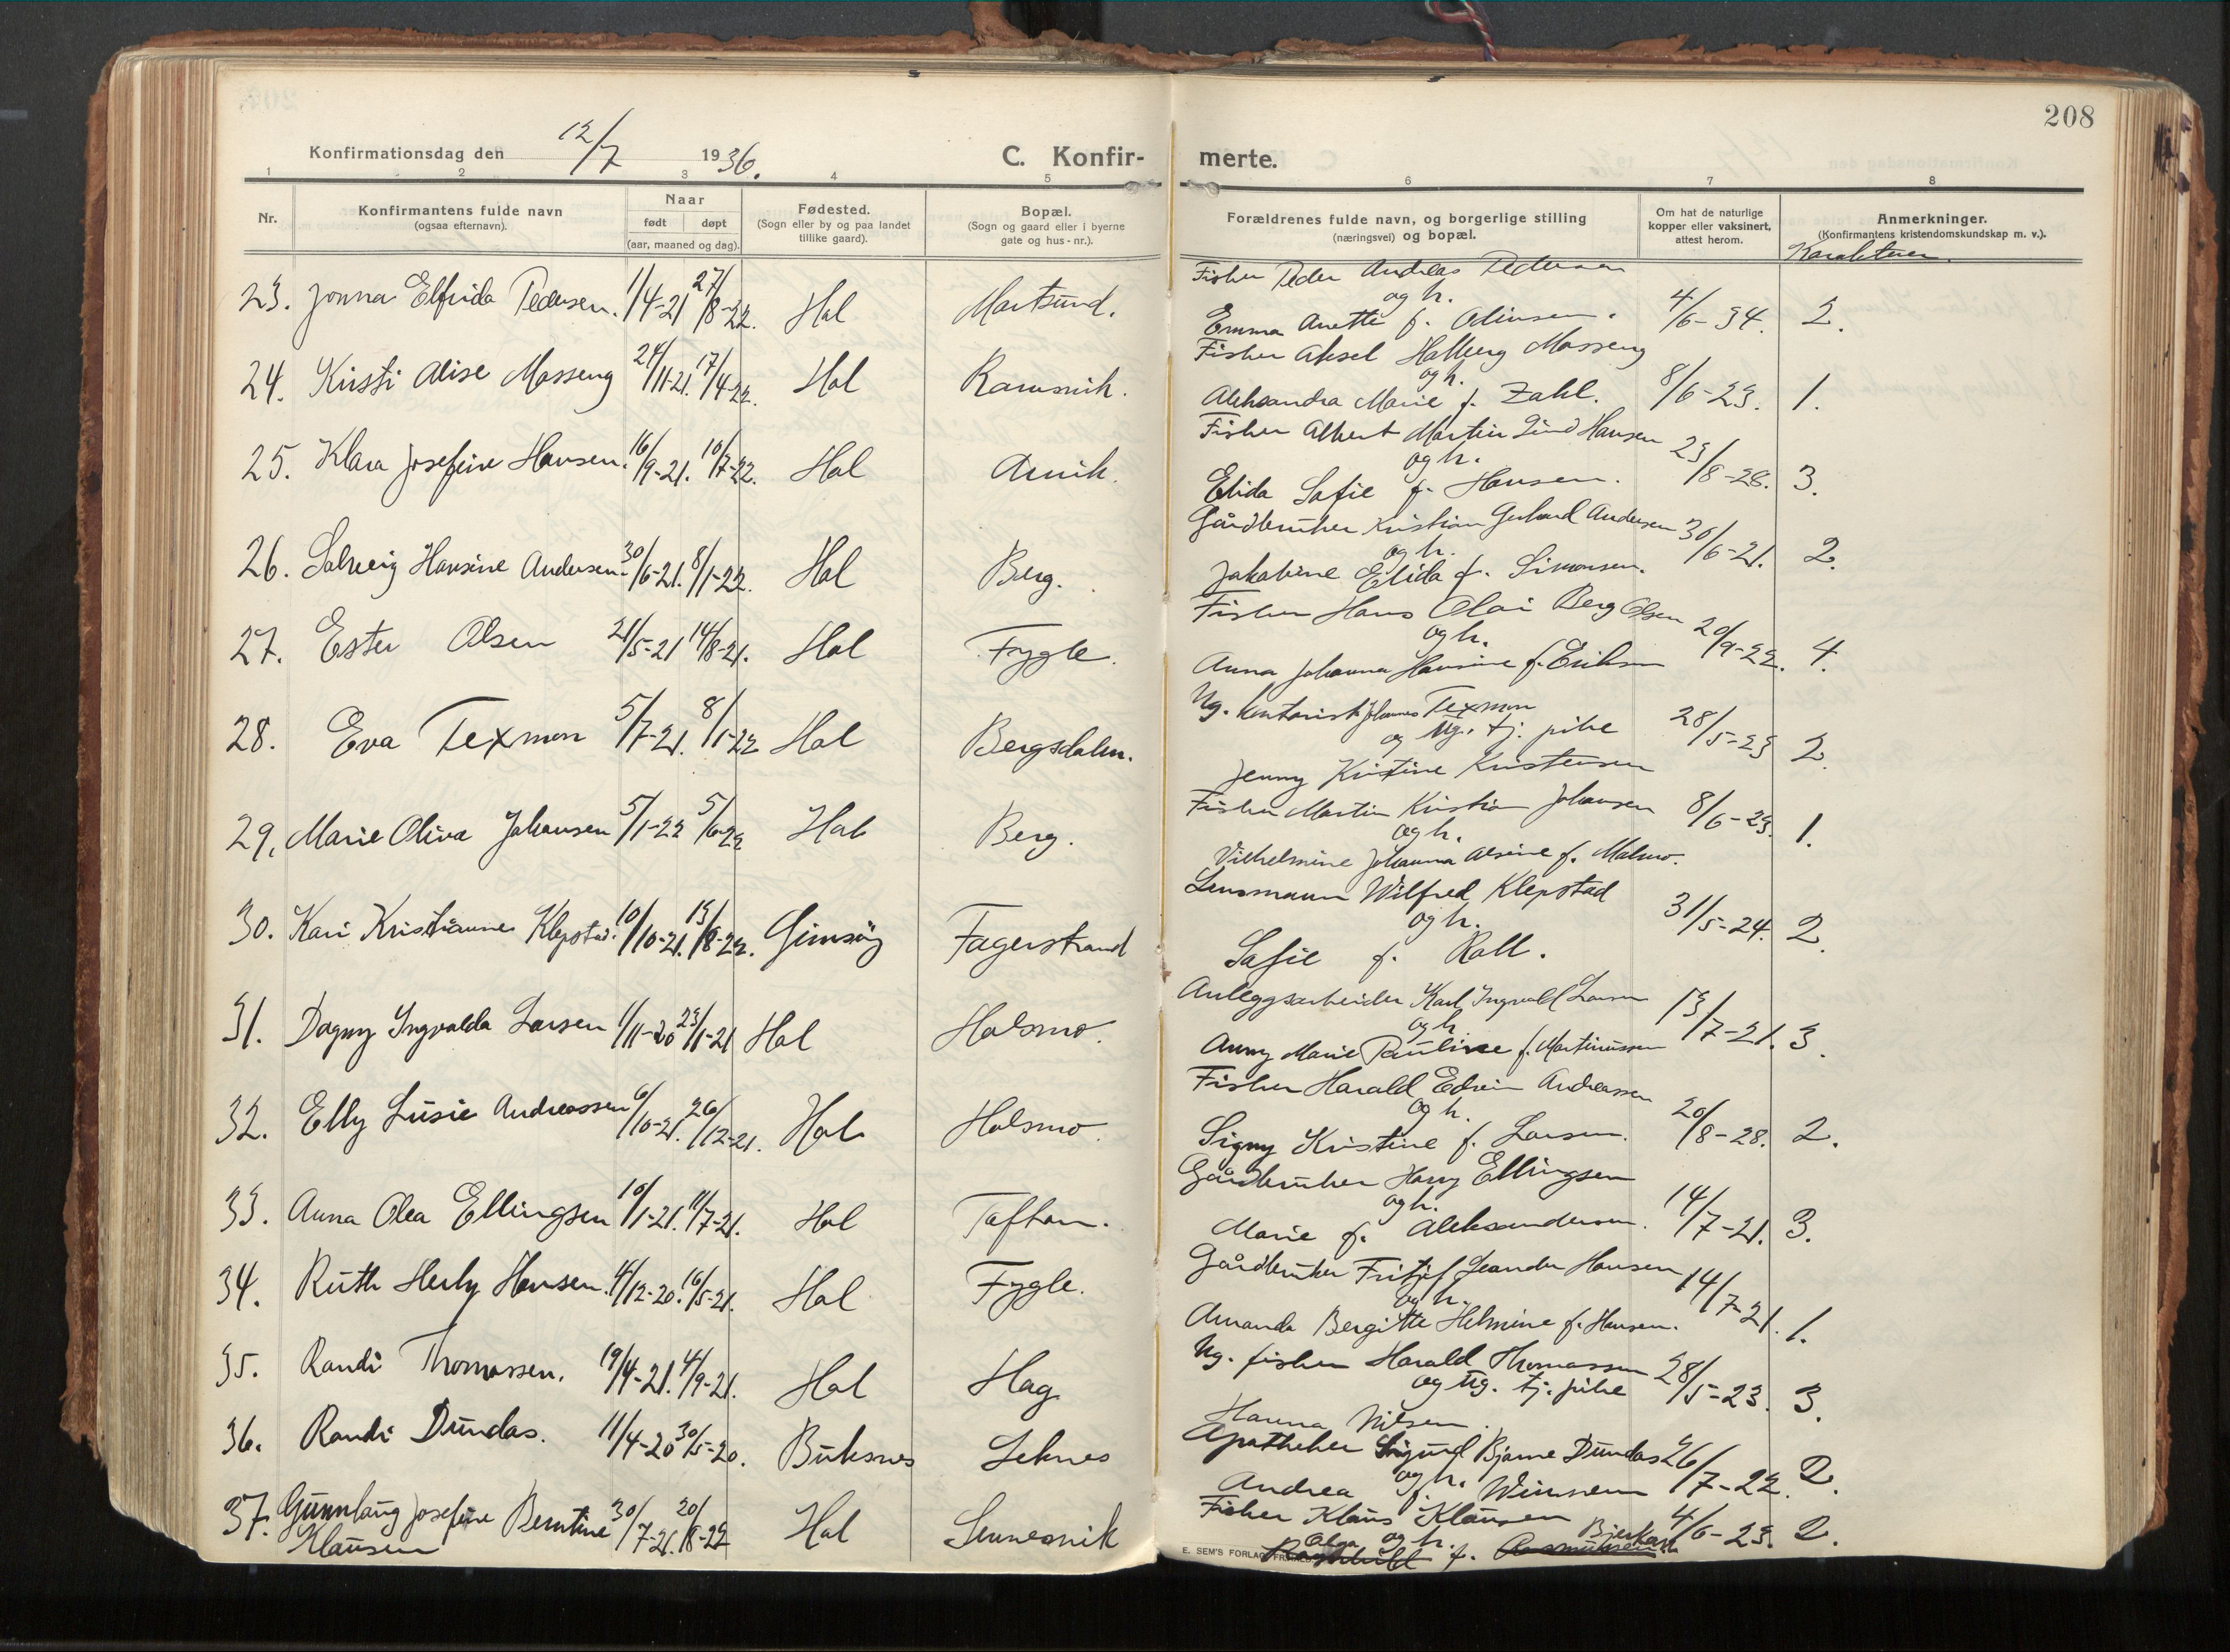 208
Konfirmationsdag den 12/7 1936.
C. Konfir- merte.
1 2 3 4 5 6 7 8
Nr.
Konfirmantens fulde navn
(ogsaa efternavn).
Naar
født døpt
(aar, maaned og dag).
Fødested.
(Sogn eller by og paa landet
tillike gaard).
Bopæl.
(Sogn og gaard eller i byerne
gate og hus-nr.).
Forældrenes fulde navn, og borgerlige stilling
(næringsvei) og bopæl.
Om hat de naturlige
kopper eller vaksinert,
attest herom.
Anmerkninger.
(Konfirmantens kristendomskundskap m. v.).
Karakterer.
23. Jonna Elfrida Pedersen. 1/4-21 27/8-22. Hol Mortsund.
Fisker Peder Andreas Pedersen
og h.
Emma Anette f. Olinsen. 4/6-34. 2.
24. Kristi Alise Masseng 24/11-21. 17/4-22. Hol Ramsvik.
Fisker Aksel Hallberg Masseng
og h.
Aleksandra Marie f. Zahl. 8/6-23. 1.
25. Klara Josefine Hansen. 16/9-21. 10/7-22. Hol Arvik.
Fisker Albert Martin Lind Hansen
og h.
Elida Sofie f. Hansen. 23/8-28. 3.
26. Solveig Hansine Andersen 30/6-21. 8/1-22. Hol Berg.
Gårdbruker Kristian Gerhard Andersen
og h.
Jakobine Elida f. Simonsen. 30/6-21. 2.
27. Ester Olsen 21/5-21 14/8-21. Hol Fygle.
Fisker Hans Olai Berg Olsen
og h.
Anna Johanna Hansine f. Eriksen 20/9-22. 4.
28. Eva Texmon 5/7-21. 8/1-22 Hol Bergsdalen.
Ug. kontorist Johannes Texmon
og ug. tj. pike
Jenny Kristine Kristensen 28/5-23 2.
29. Marie Oliva Johansen 5/1-22 5/6-22 Hol Berg.
Fisker Martin Kristian Johansen
og h.
Vilhelmine Johanna Alsine f. Malmo. 8/6-23. 1.
30. Kari Kristianne Klepstad. 10/10-21. 13/8-22. Gimsøy Fagerstrand
Lensmann Wilfred Klepstad
og h.
Sofie f. Roll. 31/5-24. 2.
31. Dagny Ingvalda Larsen 1/11-20 23/1-21 Hol Holsmo.
Anleggsarbeider Karl Ingvald Larsen
og h.
Anny Marie Pauline f. Martinussen 13/7-21. 3.
32. Elly Lusie Andreassen 6/10-21. 26/12-21. Hol Holsmo.
Fisker Harald Edvin Andreassen
og h.
Signy Kristine f. Larsen. 20/8-28. 2.
33. Anna Olea Ellingsen 10/1-21. 11/7-21. Hol Toftan.
Gårdbruker Harry Ellingsen
og h.
Marie f. Aleksandersen. 14/7-21. 3.
34. Ruth Herly Hansen. 4/12-20. 16/5-21. Hol Fygle.
Gårdbruker Fritjof Leander Hansen
og h.
Amanda Bergitte Helmine f. Hansen. 14/7-21. 1.
35. Randi Thomassen. 19/4-21. 4/9-21. Hol Hag
Ug. fisker Harald Thomassen
og ug. tj. pike
Hanna Nilsen. 28/5-23. 3.
36. Randi Dundas. 11/4-20 30/5-20. Buksnes Leknes
Apotheker Sigurd Bjarne Dundas
og h.
Andrea f. 26/7-22. 2.
37. Gunnlaug Josefine Berntine 30/7-21. 20/8-22 Hol Sennesvik
Klausen
Fisker Klaus Klausen
og h.
Olga Bjerkan
Ragnhild f. Rasmussen 4/6-23. 2.
E. SEM'S FORLAG